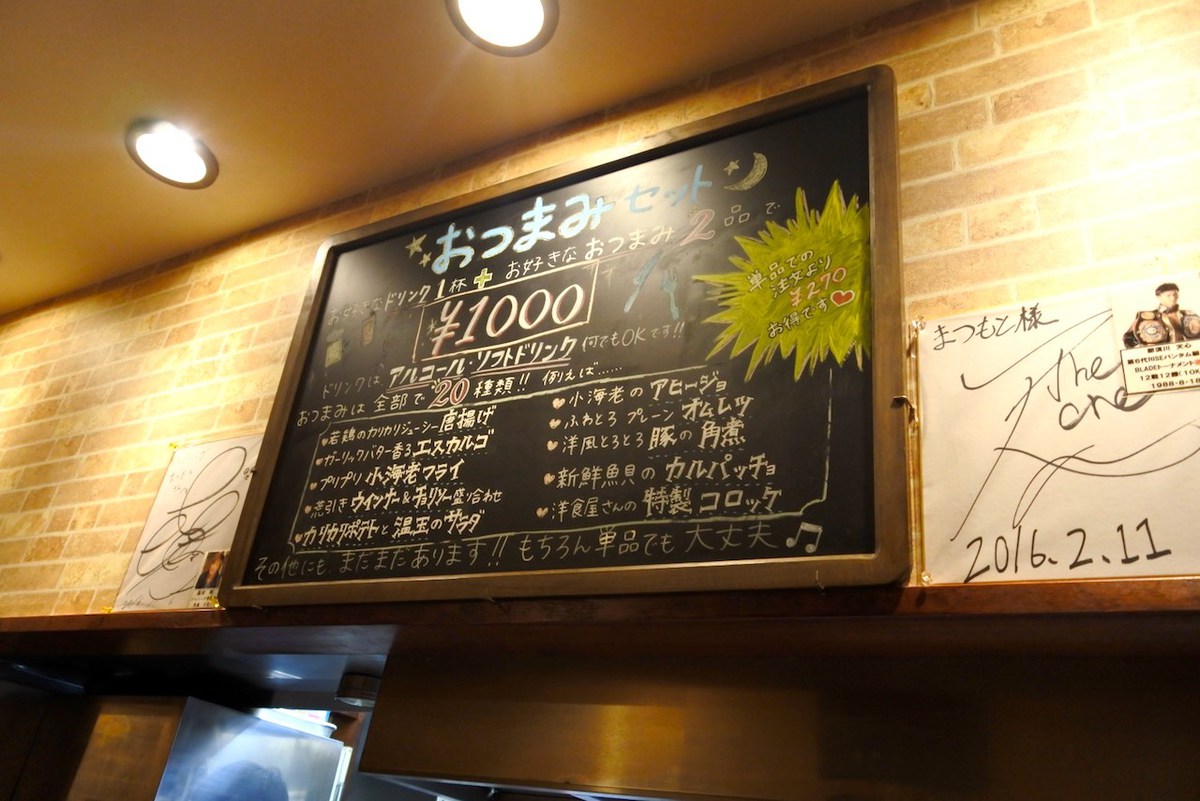 おつまみセット
お好きなドリンク1杯+お好きなおつまみ2品で
¥1000
ドリンクは アルコール・ソフトドリンク 何でもOKです!!
おつまみは 全部で 20 種類!! 例えば……
若鶏のカリカリジューシー唐揚げ
ガーリックバター香るエスカルゴ
プリプリ 小海老フライ
荒引き ウインナー&チョリソー盛り合わせ
カリカリポテトと温玉のサラダ
小海老の アヒージョ
ふわとろ プレーン オムレツ
洋風とろとろ 豚の角煮
新鮮魚貝の カルパッチョ
洋食屋さんの 特製コロッケ
その他にも まだまだあります!! もちろん単品でも 大丈夫♫
単品での
注文より
¥270
お得です
まつもと様
The
One
2016.2.11
那須川 天心
BLADEトーナメント